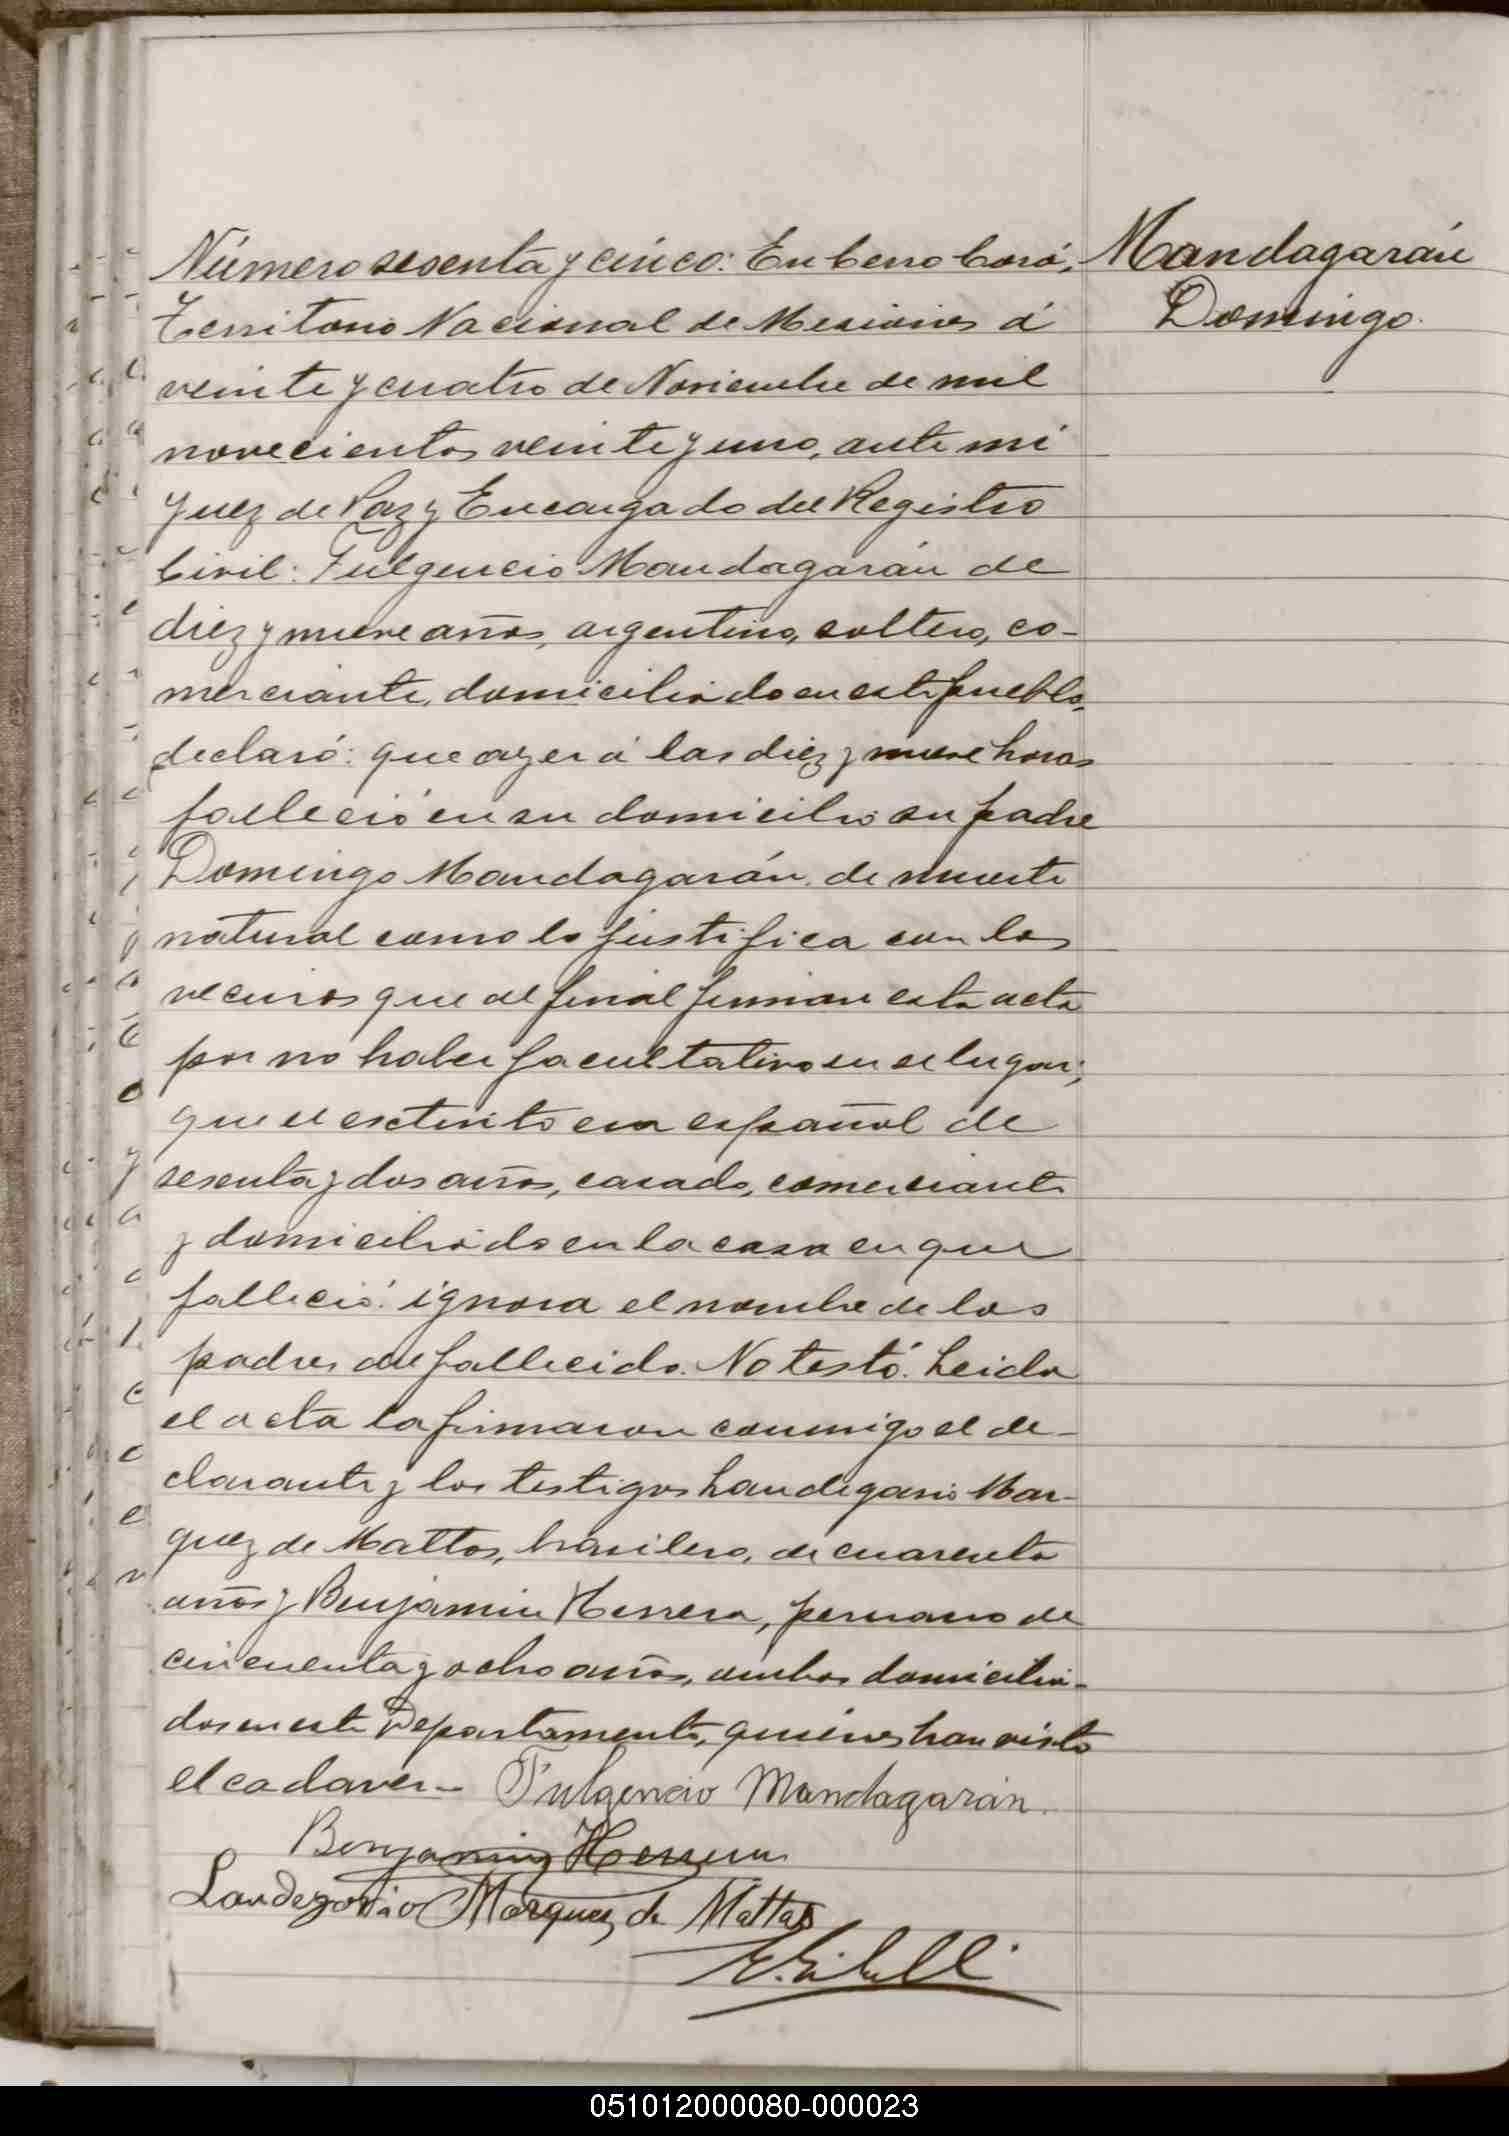 Número sesenta y cinco: En Cerro Corá,
Mandagarán
Domingo.
Territorio Nacional de Misiones á
veinte y cuatro de Noviembre de mil
novecientos veinte y uno, ante mi
Juez de Paz y Encargado del Registro
Civil: Fulgencio Mandagarán de
diez y nueve años, argentino, soltero, co-
merciante, domiciliado en este pueblo,
declaró: que ayer á las diez y nueve horas
falleció en su domicilio su padre
Domingo Mandagarán, de muerte
natural como lo justifica con los
vecinos que al final firman esta acta
por no haber facultativo en el lugar;
que el extinto era español de
sesenta y dos años, casado, comerciante
y domiciliado en la casa en que
falleció: ignora el nombre de los
padres del fallecido. No testó. Leida
el acta la firmaron conmigo el de-
clarante y los testigos Laudegario Mar-
quez de Mattos, brasilero, de cuarenta
años y Benjamin Herrera, peruano de
cincuenta y ocho años, ambos domicilia-
dos en este Departamento, quiénes han visto
el cadaver.- Fulgencio Mandagarán.
Benjamin Herrera
Laudegario Marquez de Mattos
051012000080-000023